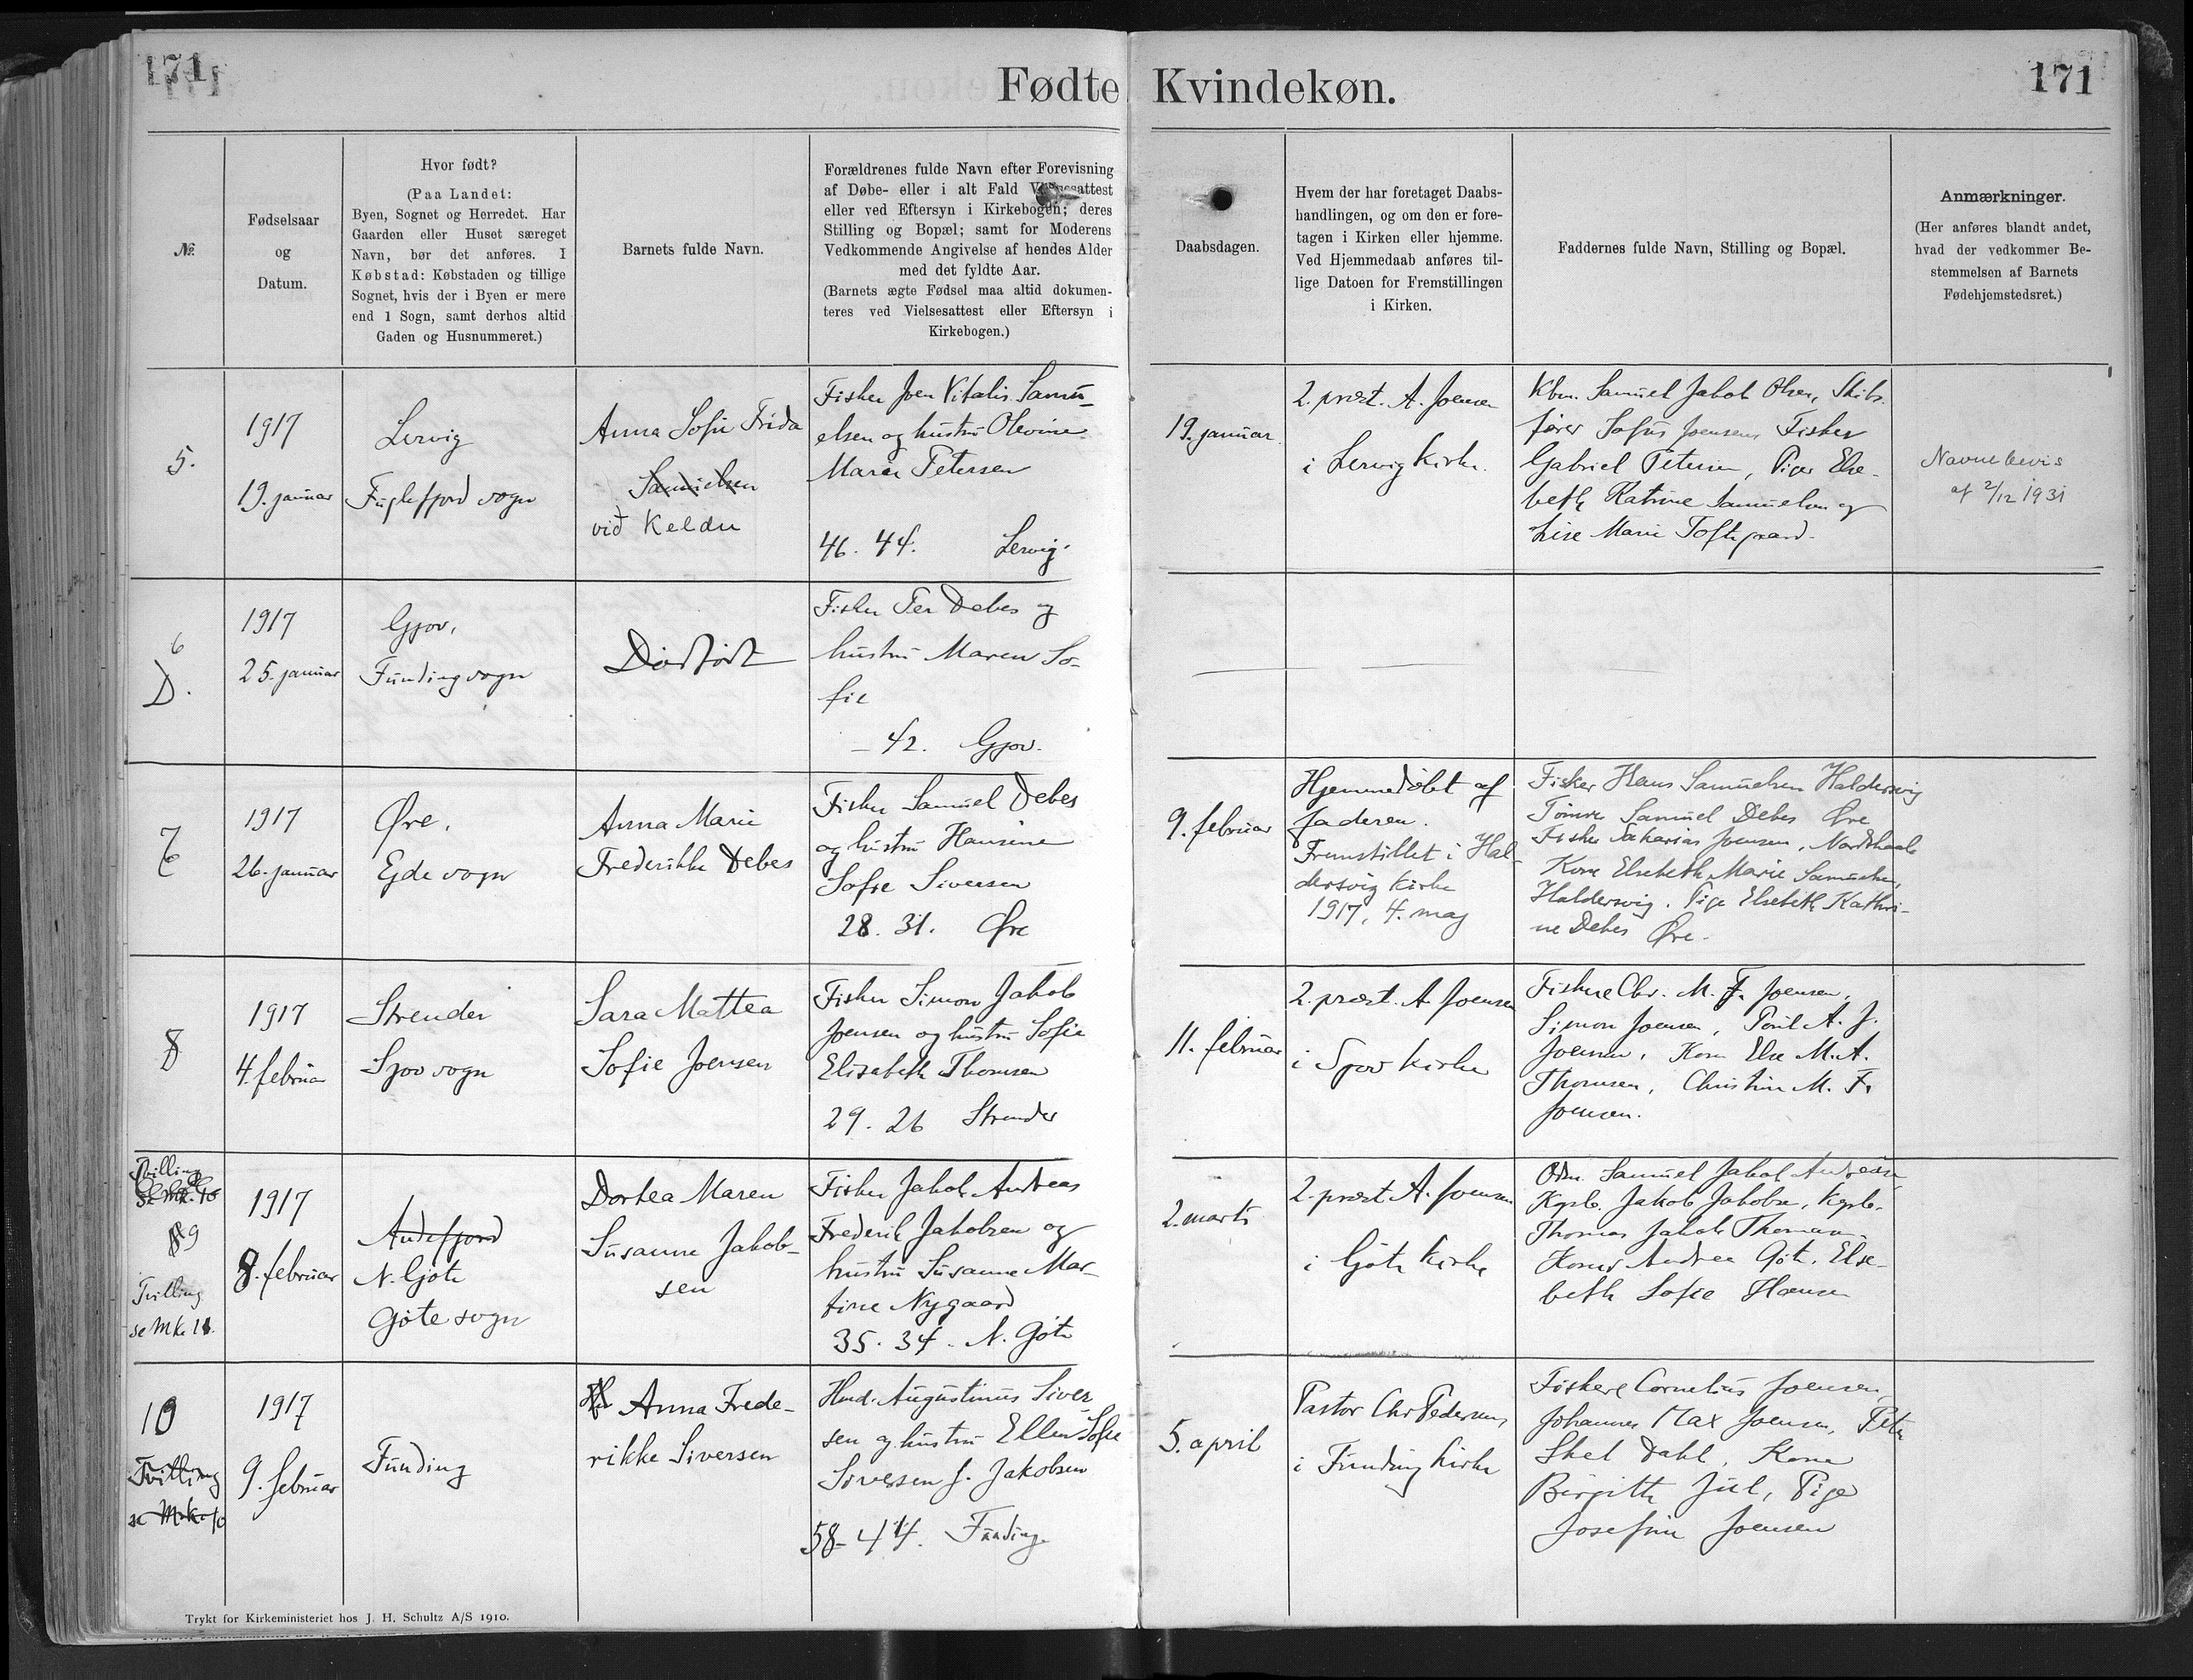 171
Fødte Kvindekøn.
171
№
Fødselsaar
og
Datum.
Hvor født?
(Paa Landet:
Byen, Sognet og Herredet. Har
Gaarden eller Huset særeget
Navn, bør det anføres. I
Købstad: Købstaden og tillige
Sognet, hvis der i Byen er mere
end 1 Sogn, samt derhos altid
Gaden og Husnummeret.)
Barnets fulde Navn.
Forældrenes fulde Navn efter Forevisning
af Døbe- eller i alt Fald Vielsesattest
eller ved Eftersyn i Kirkebogen; deres
Stilling og Bopæl; samt for Moderens
Vedkommende Angivelse af hendes Alder
med det fyldte Aar.
(Barnets ægte Fødsel maa altid dokumen-
teres ved Vielsesattest eller Eftersyn i
Kirkebogen.)
Daabsdagen.
Hvem der har foretaget Daabs-
handlingen, og om den er fore-
tagen i Kirken eller hjemme.
Ved Hjemmedaab anføres til-
lige Datoen for Fremstillingen
i Kirken.
Faddernes fulde Navn, Stilling og Bopæl.
Anmærkninger.
(Her anføres blandt andet,
hvad der vedkommer Be-
stemmelsen af Barnets
Fødehjemstedsret.)
5.
1917
19. januar
Lervig
Fuglefjord sogn
Anna Sofie Frida
Samuelsen
við Keldu
Fisker Joen Vitalis Samu-
elsen og hustru Olevine
Marie Petersen
46. 44. Lervig.
19. januar
2. præst. A. Joensen
i Lervig kirke.
Kbm. Samuel Jakob Olsen, Skibs-
fører Sofus Joensen, Fisker
Gabriel Petersen, Piger Else-
beth Katrine Samuelsen og
Lise Marie Toftegaard.
Navnebevis
af 2/12 1931
6
D.
1917
25. januar
Gjov,
Funding sogn
Dødfødt
Fisker Per Debes og
hustru Maren So-
fie
- 42. Gjov.
7
1917
26. januar
Øre,
Ejde sogn
Anna Marie
Frederikke Debes
Fisker Samuel Debes
og hustru Hansine
Sofie Siversen
28. 31. Øre
9. februar
Hjemmedøbt af
faderen.
Fremstillet i Hal-
dersvig kirke
1917, 4. maj
Fisker Hans Samuelsen Haldersvig
Tømre Samuel Debes Øre
Fisker Sakarias Joensen, Nordskaale
Kone Elsebeth Marie Samuelsen,
Haldersvig. Pige Elsebeth Kathri-
ne Debes Øre.
8
1917
4. februar
Strender
Sjov sogn
Sara Mattea
Sofie Joensen
Fisker Simon Jakob
Joensen og hustru Sofie
Elisabeth Thomsen
29. 26 Strender
11. februar
2. præst. A. Joensen
i Sjov kirke
Fiskere Chr. M. F. Joensen,
Simon Joensen, Poul A. J.
Joensen, Kone Else M. A.
Thomsen, Christine M. F.
Joensen.
Tvilling
se Mk. 10
9
Tvilling
se Mk. 11.
1917
8. februar
Andefjord
N. Gjøte
Gøte sogn
Dortea Maren
Susanne Jakob-
sen
Fisker Jakob Andreas
Frederik Jakobsen og
hustru Susanne Mar-
tine Nygaard
35. 34. N. Gøte
2. marts
2. præst A. Joensen
i Gøte kirke
Odm. Samuel Jakob Andreasen
Kgsb. Jakob Jakobsen, Kgsb.
Thomas Jakob Thomsen,
Koner Andrea Gøte, Else-
beth Sofie Hansen
10
Tvilling
se Mk. 10
1917
9. februar
Funding
Anna Frede-
rikke Siversen
Hmd. Augustinus Siver
sen og hustru Ellen Sofie
Siversen f. Jakobsen
58-44. Funding
5. april
Pastor Chr Pedersen,
i Funding kirke
Fiskere Cornelius Joensen,
Johannes Max Joensen, Peter
Skeel Dahl, Kone
Birgitte Jul, Pige
Josefine Joensen
Trykt for Kirkeministeriet hos J. H. Schultz A/S 1910.